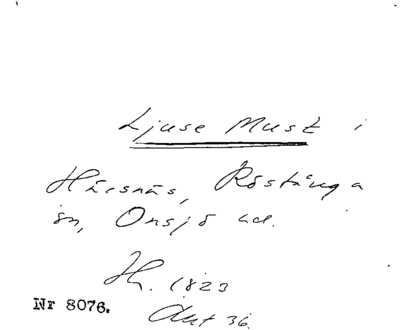 Ljuse Must i
Härsnäs, Röstånga
sn, Onsjö hd.
Hh. 1823
Nr 8076.
Aut 36.